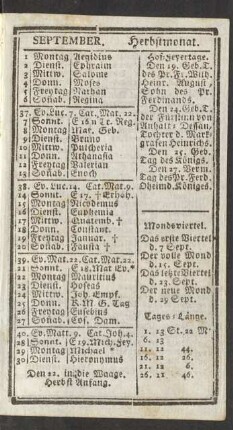 SEPTEMBER. Herbstmonat.
1 Montag Aegidius
2 Dienst. Ephraim
3 Mittw. Salome
4 Donn. Moses
5 Freytag Nathan
6 Sonab. Regina
37. Ev. Luc. 7. Cat. Mat. 22.
7 Sonnt.
8 Montag Mar. Geb.
9 Dienst. Bruno
10 Mittw. Pulcheria
11 Donn. Athanasia
12 Freytag Valerian
13 Sonab. Enoch
38. Ev. Luc. 14. Cat. Mat. 9.
14 Sonnt. E 17. † Erhöh.
15 Montag Nicodemus
16 Dienst. Euphemia
17 Mittw. Quatemb. †
18 Donn. Constant.
19 Freytag Januar. †
20 Sonab. Fausta †
39. Ev. Mat. 22. Cat. Mat. 22.
21 Sonnt. E 18 Mat. Ev.
22 Montag Mauritius
23 Dienst. Hoseas
24 Mittw. Joh. Empf.
25 Donn. K. M G. Tag
26 Freytag Eusebius
27 Sonab. Cos. Dam.
40. Ev. Matt. 9. Cat. Joh. 4.
28 Sonnt. E 19. Mich. Fey.
29 Montag Michael *
30 Dienst. Hieronymus
Den 22. in die Waage.
Herbst Anfang.
Hof-Feyertage.
Den 19. Geb. T.
des Pr. Fr. Wilh.
Heinr. August,
Sohn des Pr.
Ferdinands.
Den 24. Geb. T.
der Fürstinn von
Anhalt: Dessau,
Tochter d. Mark-
grafen Heinrichs.
Den 25. Geb.
Tag des Königs.
Den 27. Verm.
Tag des Pr. Ferd.
Oheim d. Königes.
Mondsviertel.
Das erste Viertel
d. 7 Sept.
Der volle Mond
d. 15. Sept.
Das letzte Viertel
d. 23. Sept.
Der neue Mond
d. 29 Sept.
Tages: Länge.
1. 13 St. 22 M
6. 13
11. 12 44.
16. 12
21. 12
26. 11 46.